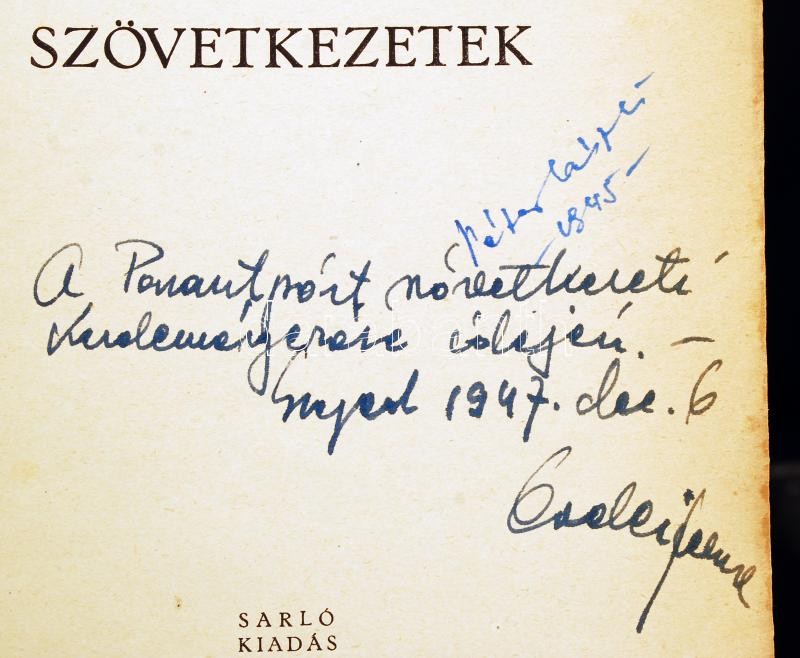 SZÖVETKEZETEK
Péter László
1945
A Parasztpárt szövetkezeti
kezdeményezése idején. –
Szeged 1947. dec. 6
Erdei Ferenc
SARLÓ
KIADÁS